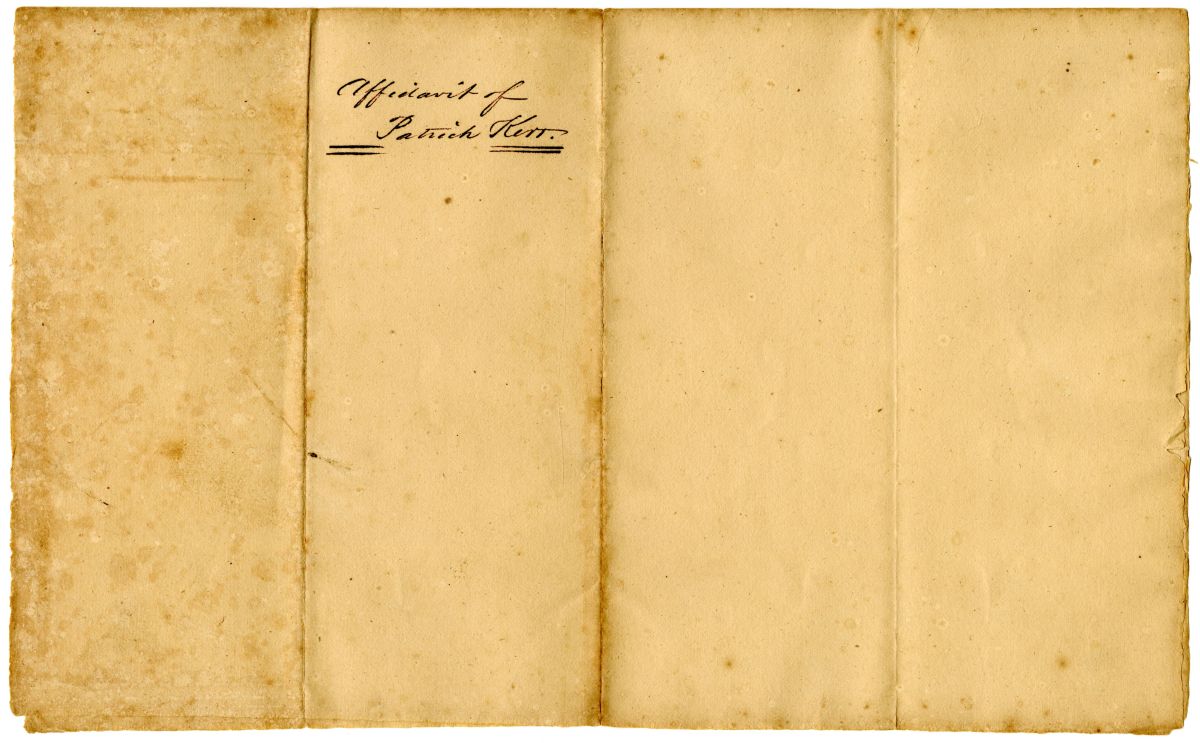 Affidavit of
Patrick Kerr.